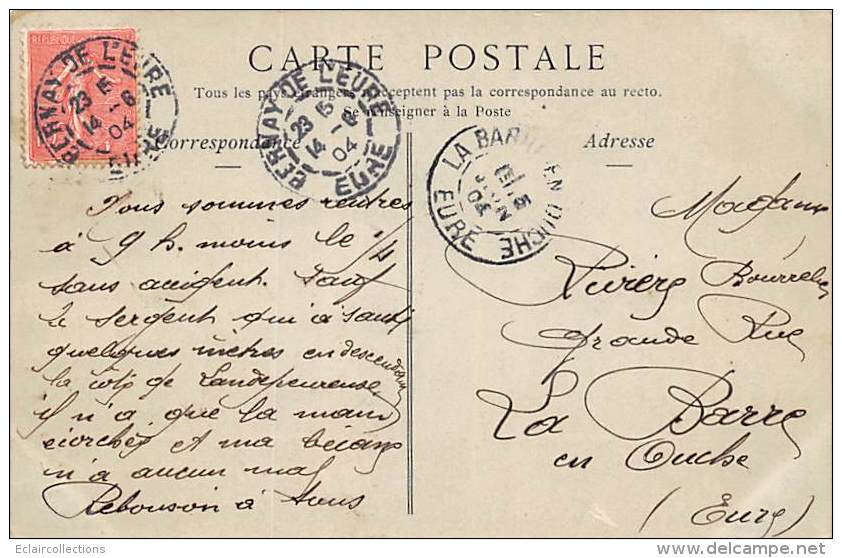 REPUBLIQUE
BERNAY DE L'EURE
23 15
14 -6
04
EURE
BERNAY DE L'EURE
23 15
14 -6
04
EURE
CARTE POSTALE
Tous les pays étrangers n'acceptent pas la correspondance au recto.
Se renseigner à la Poste
Correspondance
Adresse
LA BARRE EN OUCHE
JUIN
04
EURE
Nous sommes rentrés
à 9 h. moins le 1/4
sans accident. Sauf
le sergent qui a sauté
quelques mètres en descendant
la côte de Landepeureuse
il n'a que la main
écorchée et ma bécane
n'a aucun mal
à tous
Madame
Rivière Bourrelier
Grande Rue
La Barre
en Ouche
(Eure)
Eclaircollections
www.delcampe.net